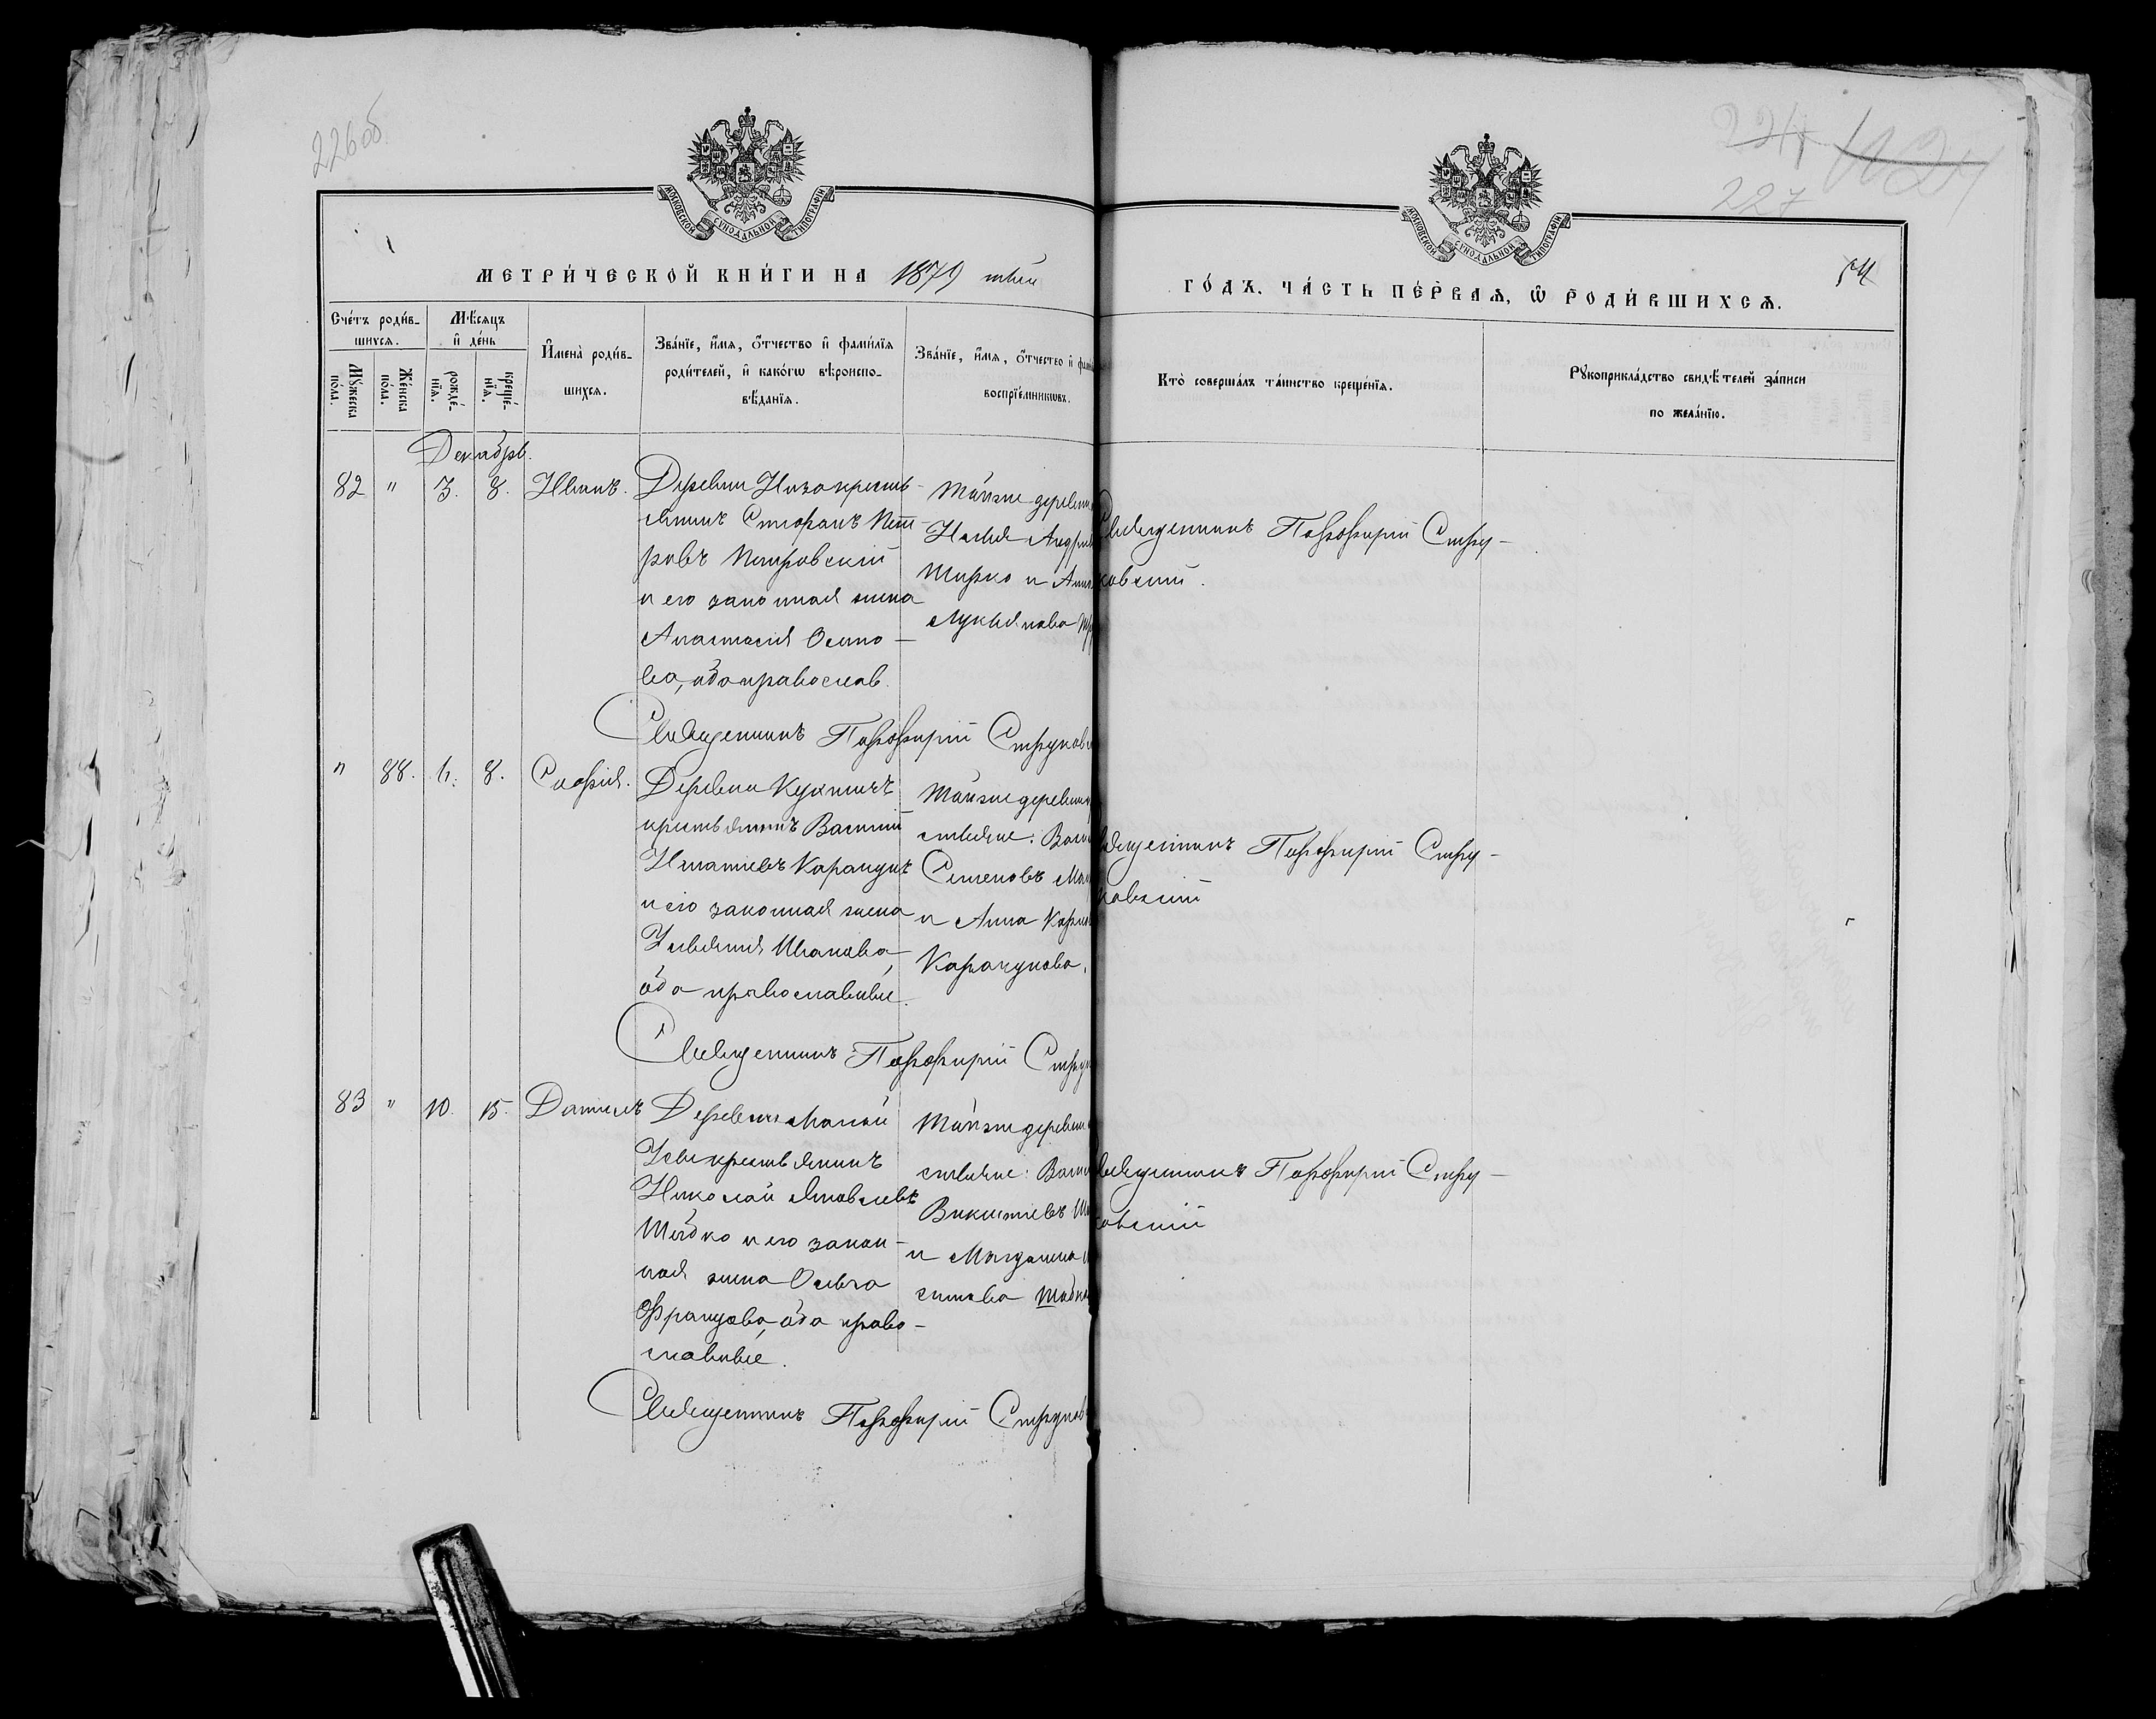 226об
227
54
МОСКОВСКОЙ СУНОДАЛЬНОЙ ТИПОГРАФІИ
МОСКОВСКОЙ СУНОДАЛЬНОЙ ТИПОГРАФІИ
МЕТРИ́ЧЕСКОЙ КНИ́ГИ НА 1879 тый
ГО́ДЪ. ЧА́СТЬ ПЕ́РВАѦ, Ѡ РОДИ́ВШИХСѦ.
Сче́тъ роди́в-
шихсѧ.
Мꙋ́жеска по́ла.
Же́нска по́ла.
Мѣ́сяцъ
и҆ де́нь
рожде́-
нїѧ.
креще́-
нїѧ.
И҆мена̀ роди́в-
шихсѧ.
Зва́нїе, и҆́мѧ, ѻ҆́тчество и҆ фами́лїѧ
роди́телей, и҆ како́гѡ вѣроиспо-
вѣ́данїѧ.
Зва́нїе, и҆́мѧ, ѻ҆́тчество и҆
воспрїе́мникѡвъ.
Кто̀ соверша́лъ та́инство креще́нїѧ.
Рꙋкоприкла́дство свидѣ́телей за́писи
по жела́нїю.
Декабрь.
82 " 3. 8. Иванъ.
Деревни Низокресть-
янинъ Стефанъ Пет-
ровъ Петровскій
и его законная жена
Анастасія Осипо-
ва, оба православ.
тойже деревни
Андр
и Анна
Лукьянова
Священникъ Порфирій Стру-
ковскій.
Священникъ Порфирій Струков
" 88. 6. 8. Софія.
Деревни
крестьянинъ Василій
Игнатіевъ
и его законная жена
Иванова,
оба православные.
тойже деревни
стьяне: Васи
Семеновъ
и Анна
Священникъ Порфирій Стру-
ковскій
Священникъ Порфирій Стру
83 " 10. 15. Даніилъ
Деревни Малой
крестьянинъ
Николай Яковлевъ
и его закон-
ная жена Ольга
Францова, оба право-
славные.
тойже деревни
стьяне: Васи
Викентіевъ
и Магдалина
Священникъ Порфирій Стру-
ковскій
Священникъ Порфирій Струков